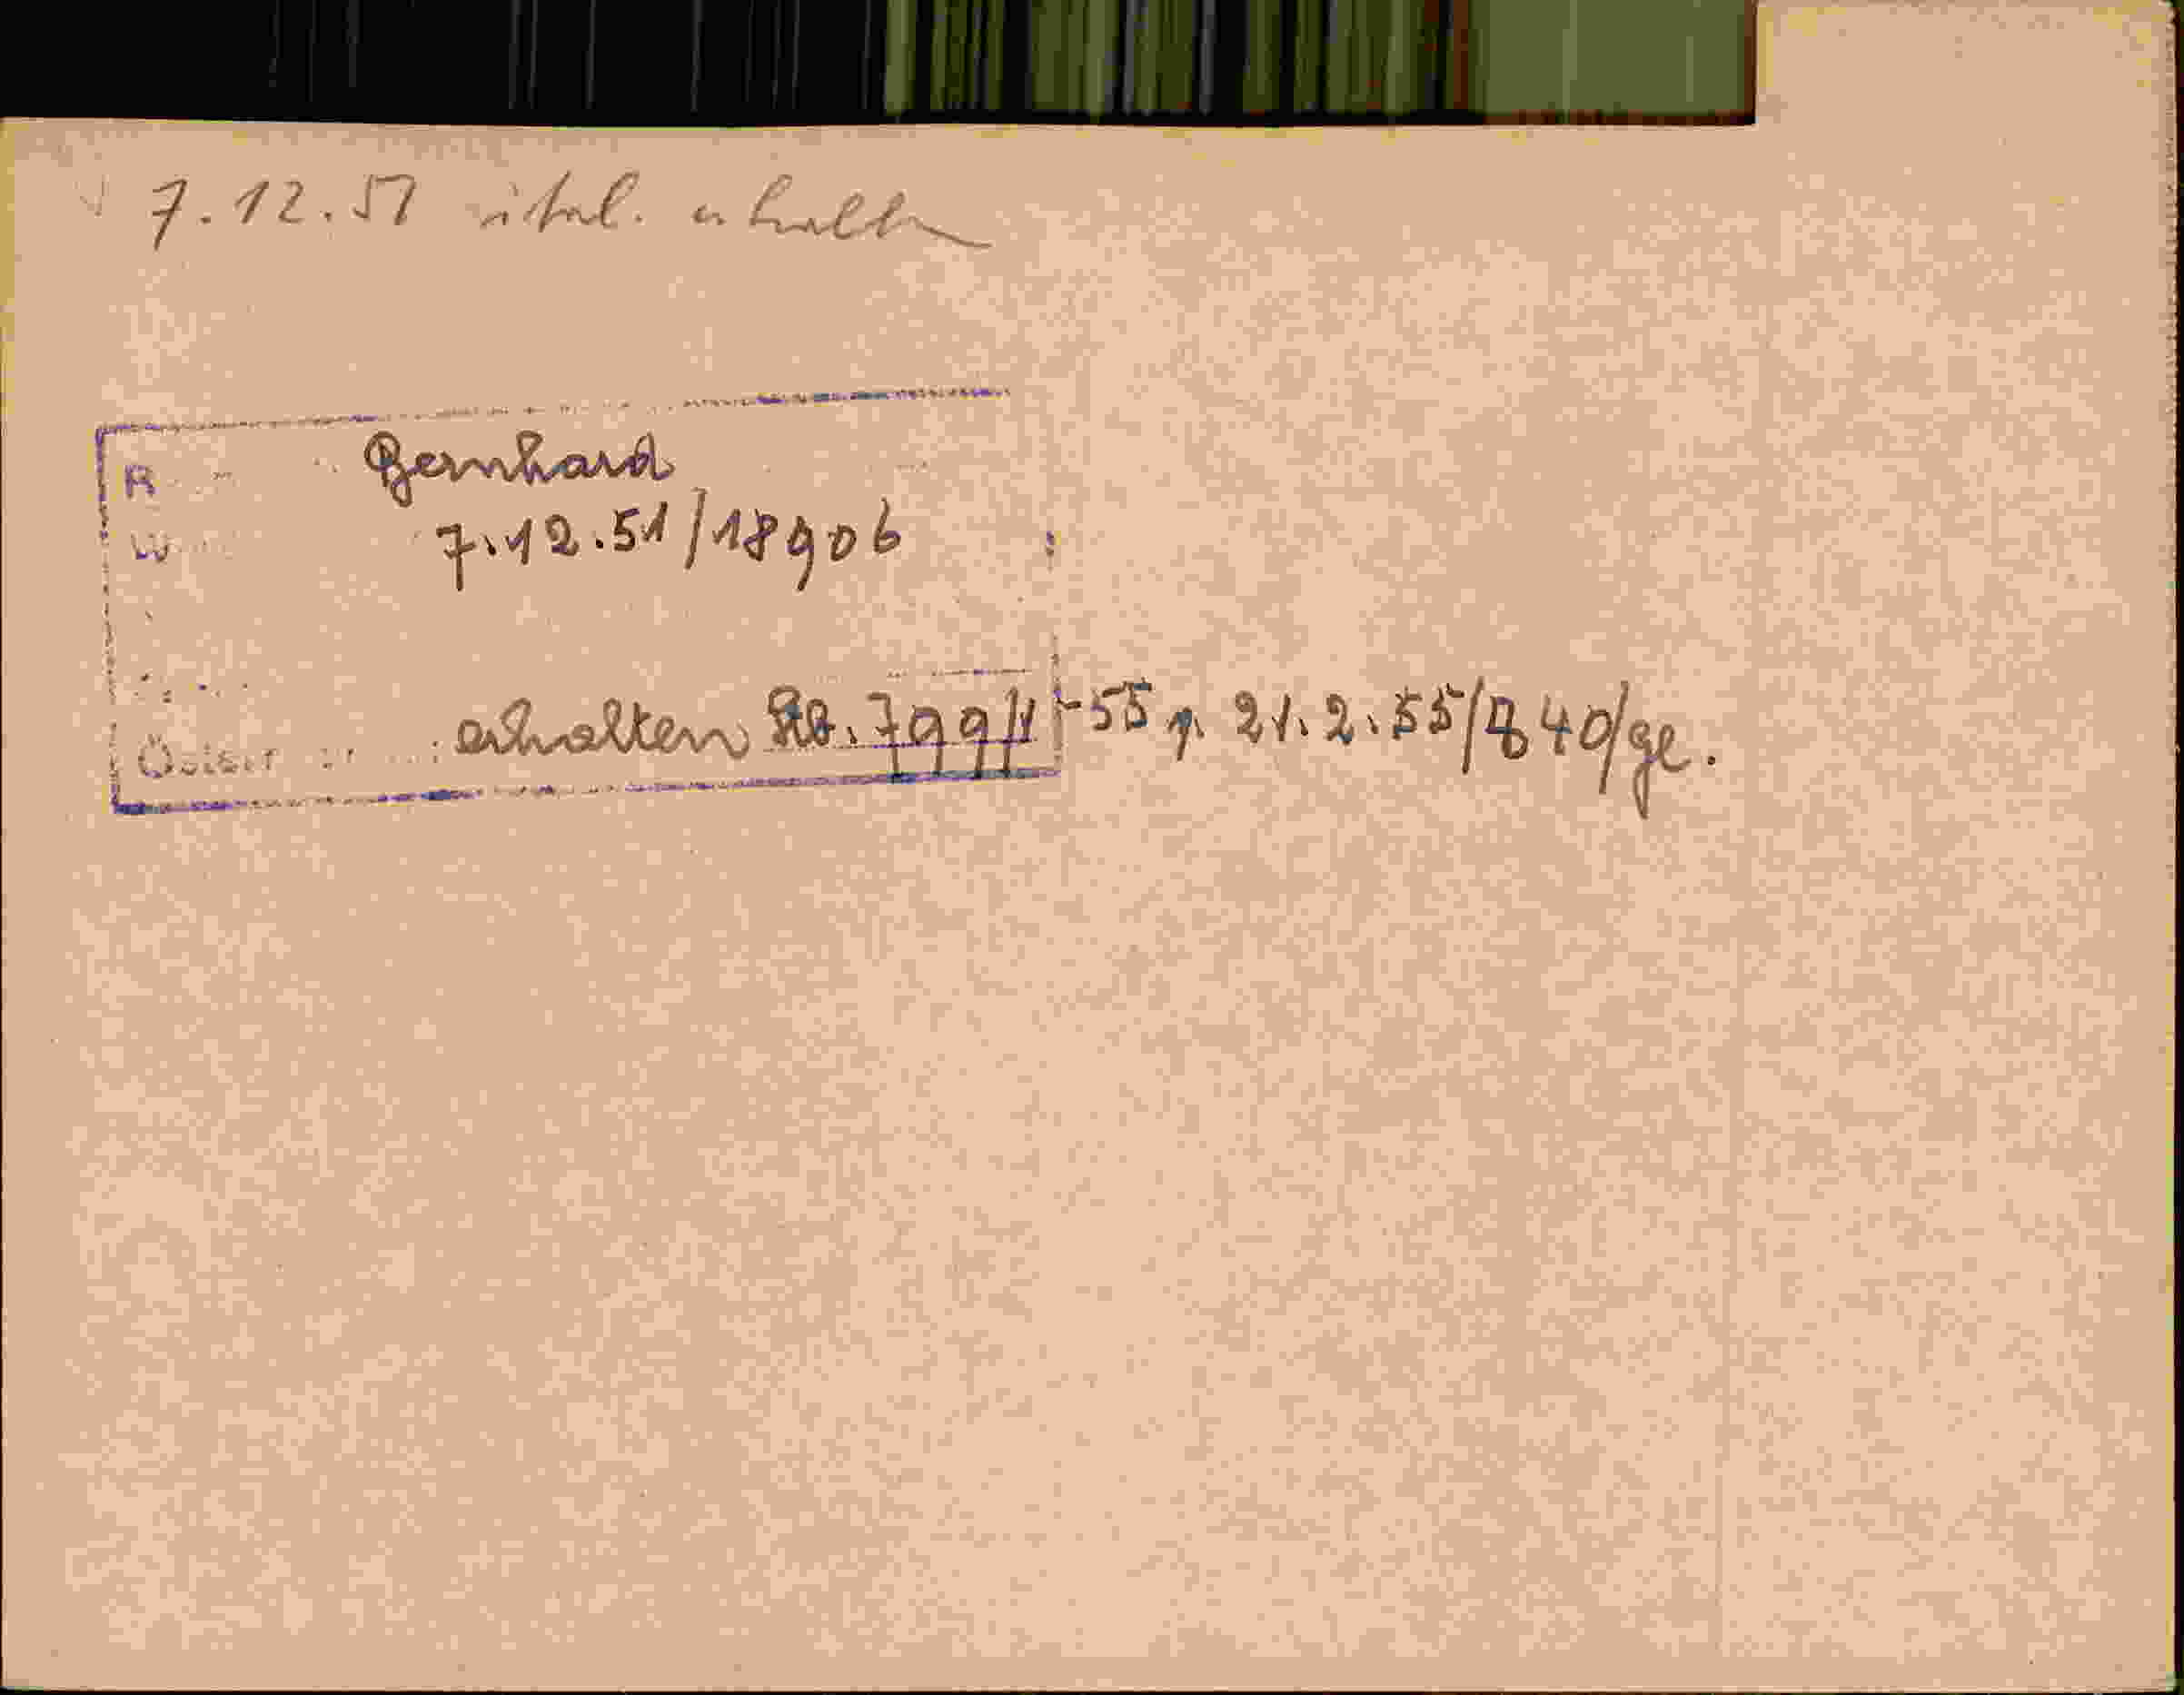 7.12.51 ital. erhalten
R
Bernhard
W
7.12.51/18906
erhalten 799/1-55 21.2.55/840/ge.